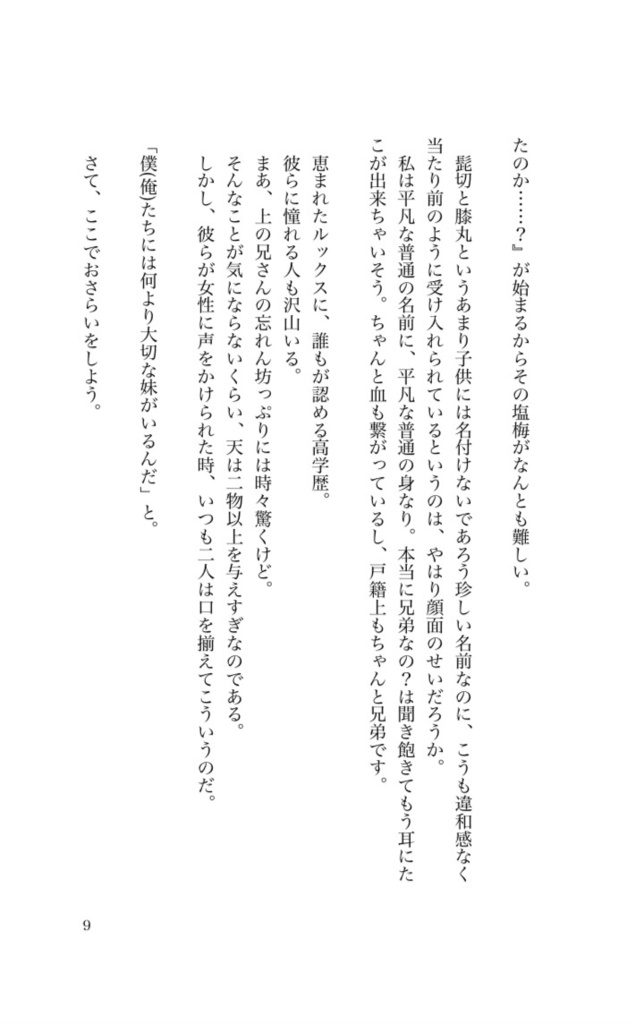 たのか……？』が始まるからその塩梅がなんとも難しい。
髭切と膝丸というあまり子供には名付けないであろう珍しい名前なのに、こうも違和感なく
当たり前のように受け入れられているというのは、やはり顔面のせいだろうか。
私は平凡な普通の名前に、平凡な普通の身なり。本当に兄弟なの？は聞き飽きてもう耳にた
こが出来ちゃいそう。ちゃんと血も繋がっているし、戸籍上もちゃんと兄弟です。
恵まれたルックスに、誰もが認める高学歴。
彼らに憧れる人も沢山いる。
まあ、上の兄さんの忘れん坊っぷりには時々驚くけど。
そんなことが気にならないくらい、天は二物以上を与えすぎなのである。
しかし、彼らが女性に声をかけられた時、いつも二人は口を揃えてこういうのだ。
「僕(俺)たちには何より大切な妹がいるんだ」と。
さて、ここでおさらいをしよう。
9